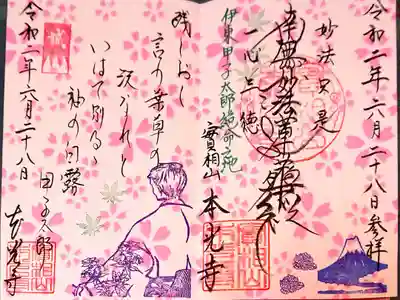 令和二年六月二十八日参拝
妙法只是
南無妙法蓮華経
一心上徳
伊東甲子太郎絶命之地
實相山 本光寺
残しおく
言の葉草の
いはて別るゝ
袖の白露
令和二年六月二十八日
本光寺